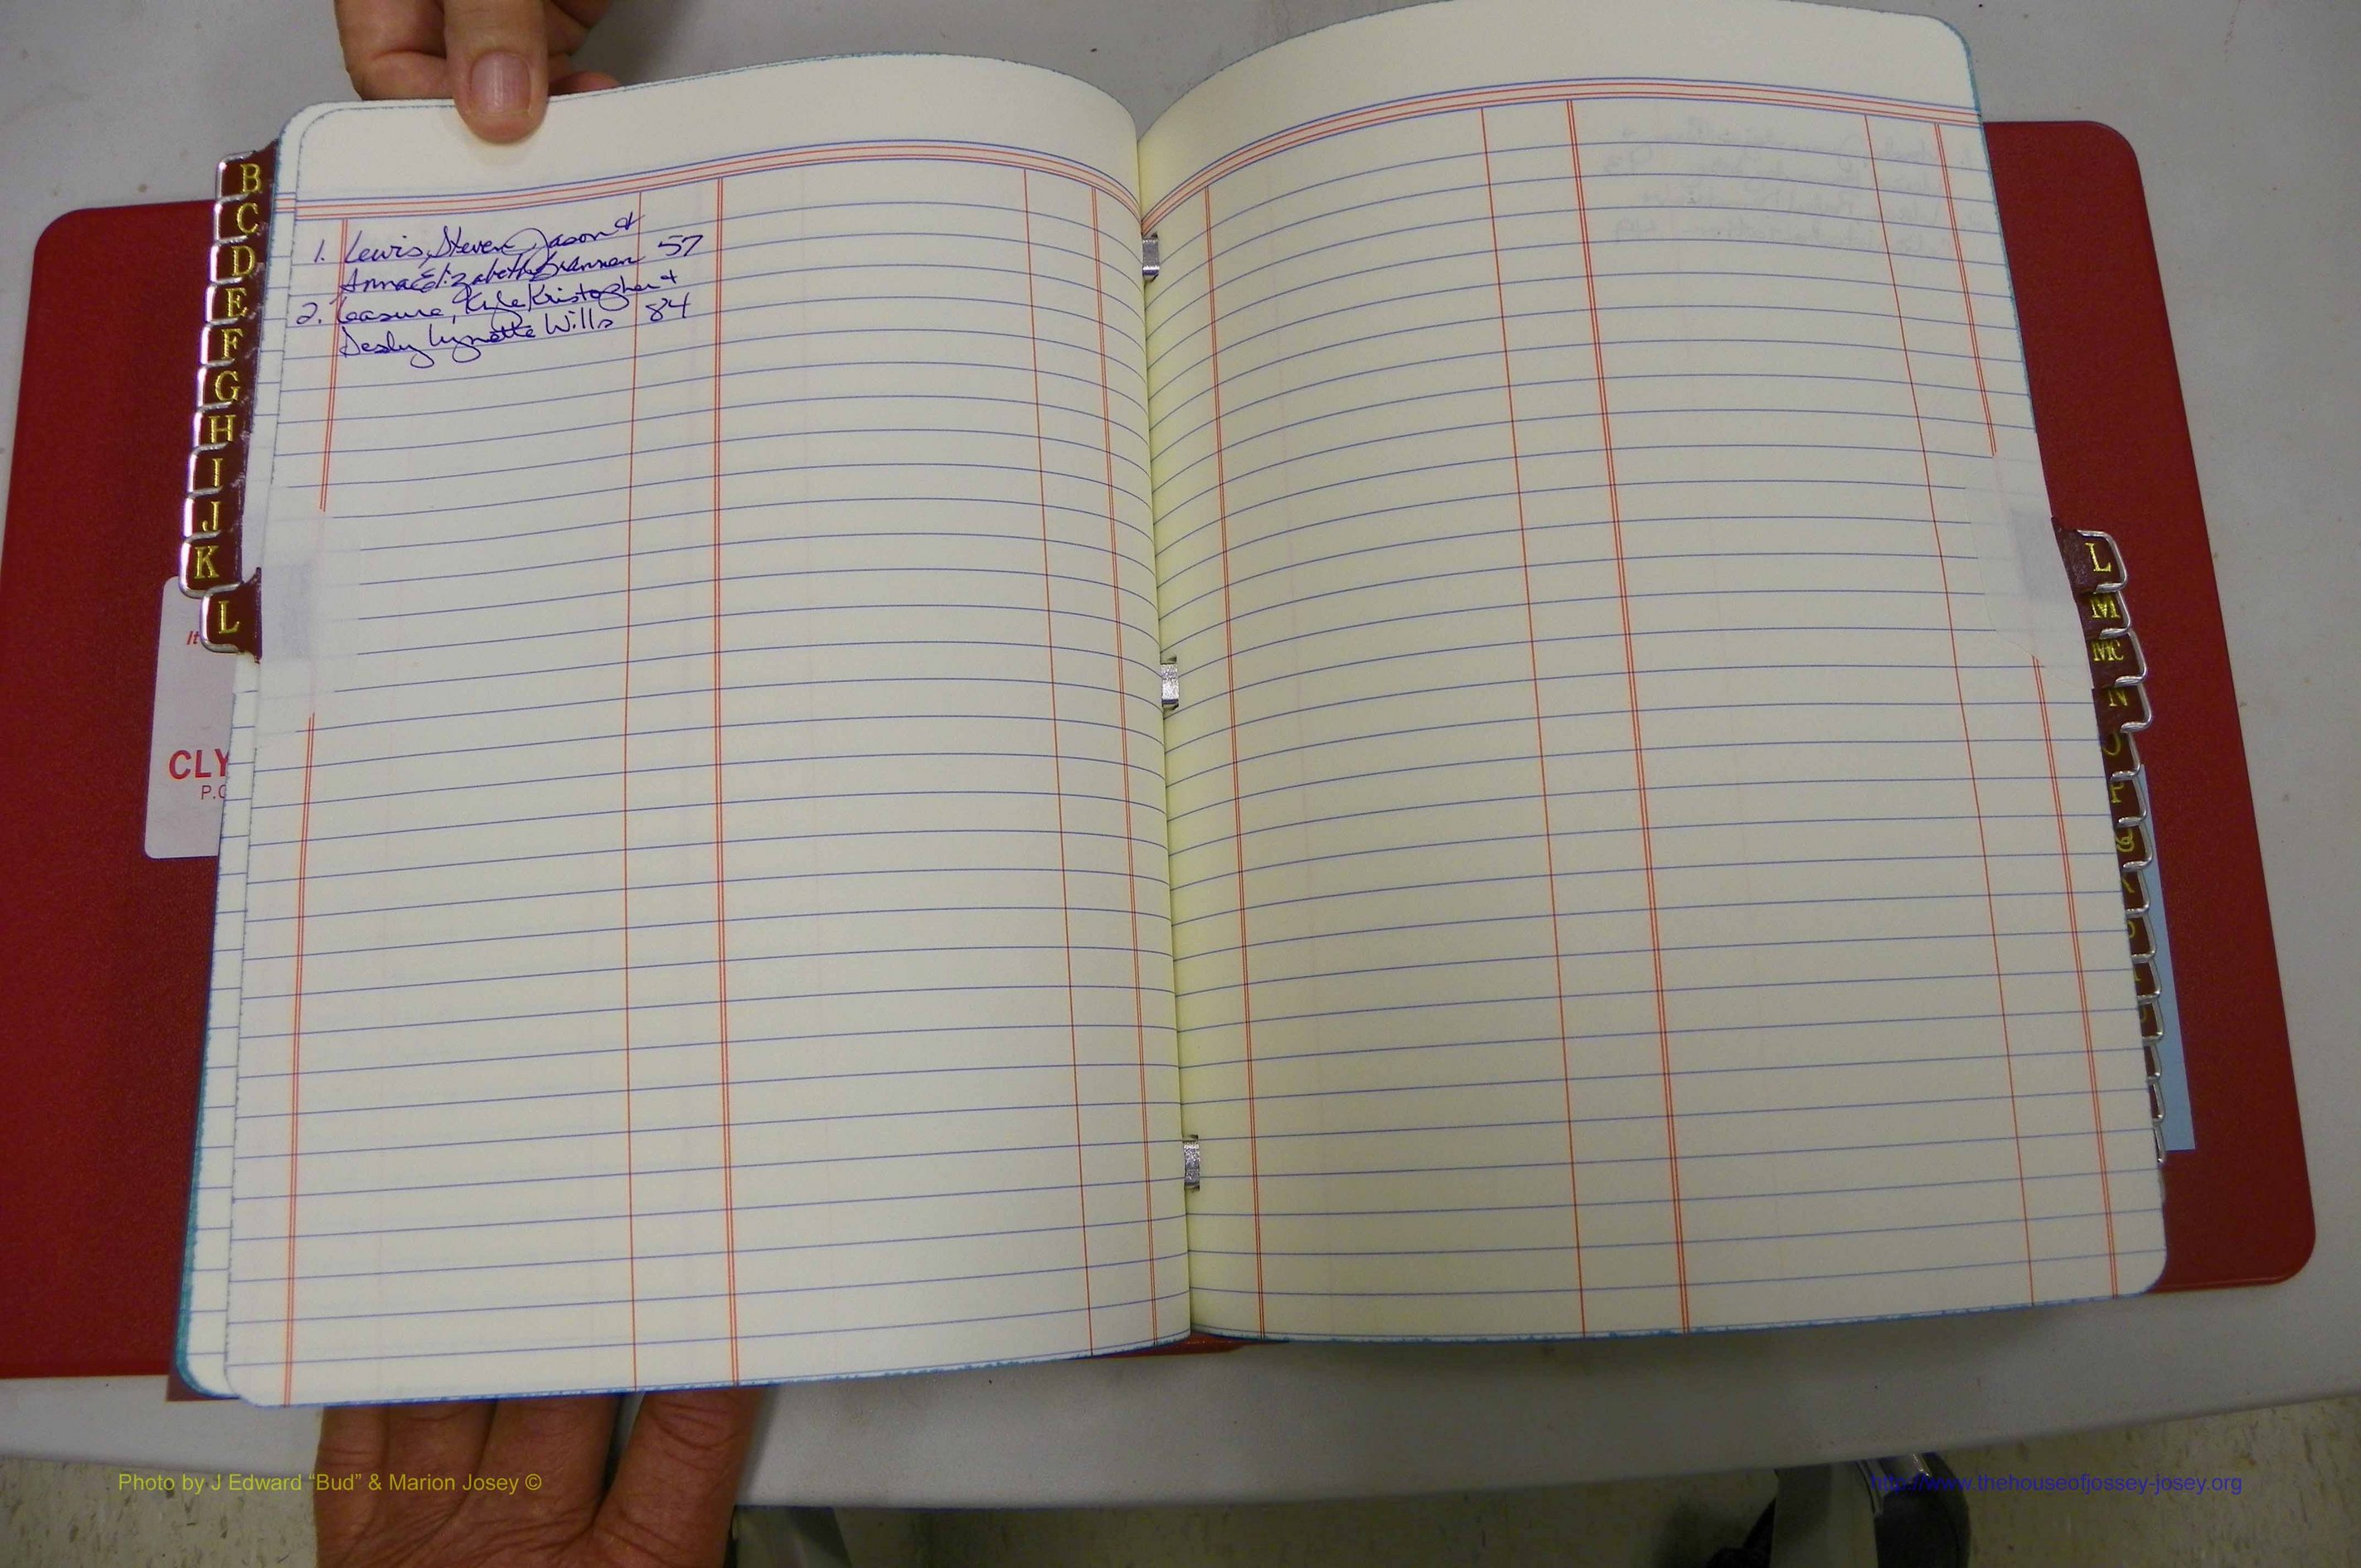 1. Lewis, Steven Jason &
Anna Elizabeth Brannen 57
2. Leasure, Kyle Kristopher &
Lynette Wills 84
B
C
D
E
F
G
H
I
J
K
L
It
CLY
P.O
L
M
MC
N
O
P
Q
Photo by J Edward “Bud” & Marion Josey ©
http://www.thehouseofjossey-josey.org